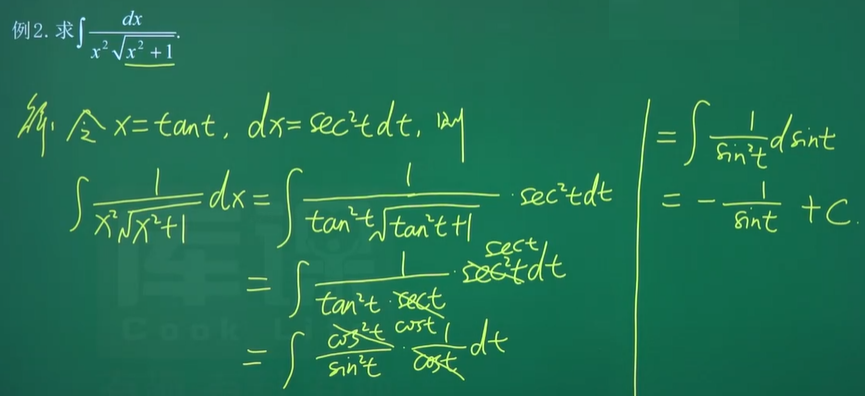 例2. 求∫ dx / (x²√(x²+1)).
解: 令 x=tant, dx=sec²tdt, 则
∫ 1/(x²√(x²+1)) dx = ∫ 1/(tan²t√(tan²t+1)) · sec²tdt
= ∫ 1/(tan²t · sect) · sec²t sect dt
= ∫ cos²t cost/sin²t · 1/cost dt
= ∫ 1/sin²t d sint
= - 1/sint + C.